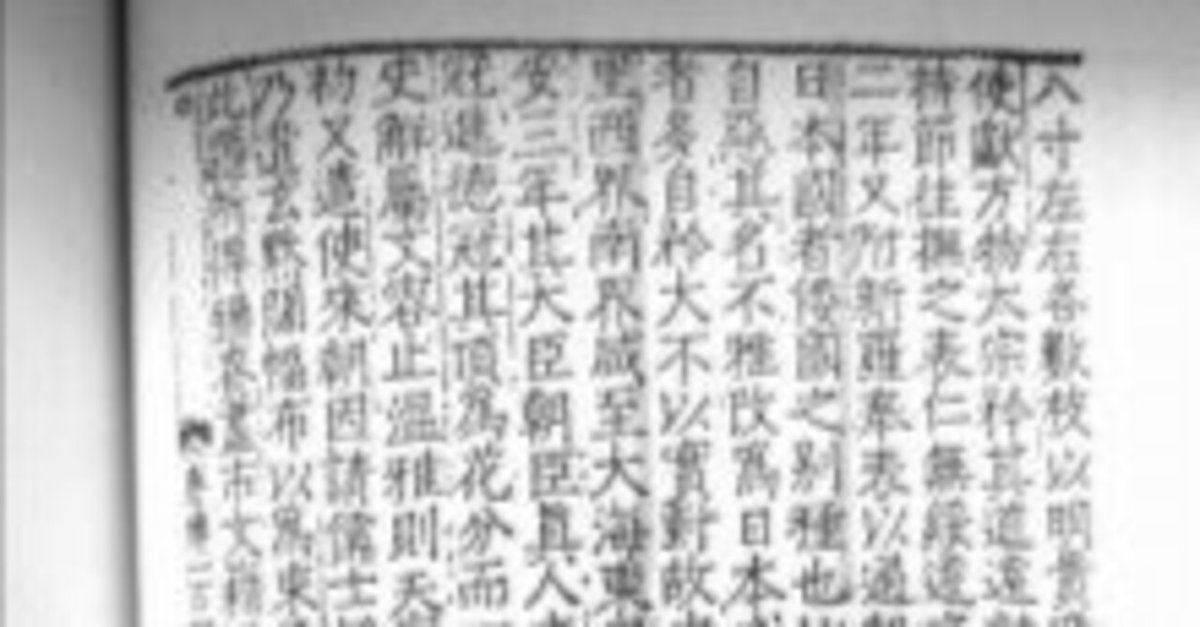 八寸左右各數枚以明貴
使獻方物太宗矜其道遠
持節往撫之表仁無綏遠
二年又附新羅奉表以通
日本國者倭國之別種也
自惡其名不雅改爲日本
者多自矜大不以實對故
里西界南界咸至大海東
安三年其大臣朝臣真人
冠進德冠其頂爲花分而
史解屬文容止溫雅則天
初又遣使來朝因請儒士
乃 去 闊幅布以爲東
此 所得錫賚盡市文籍